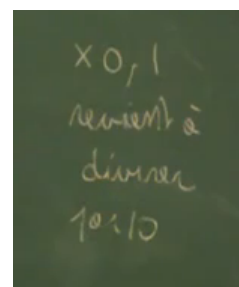 × 0,1
revient à
diviser
par 10